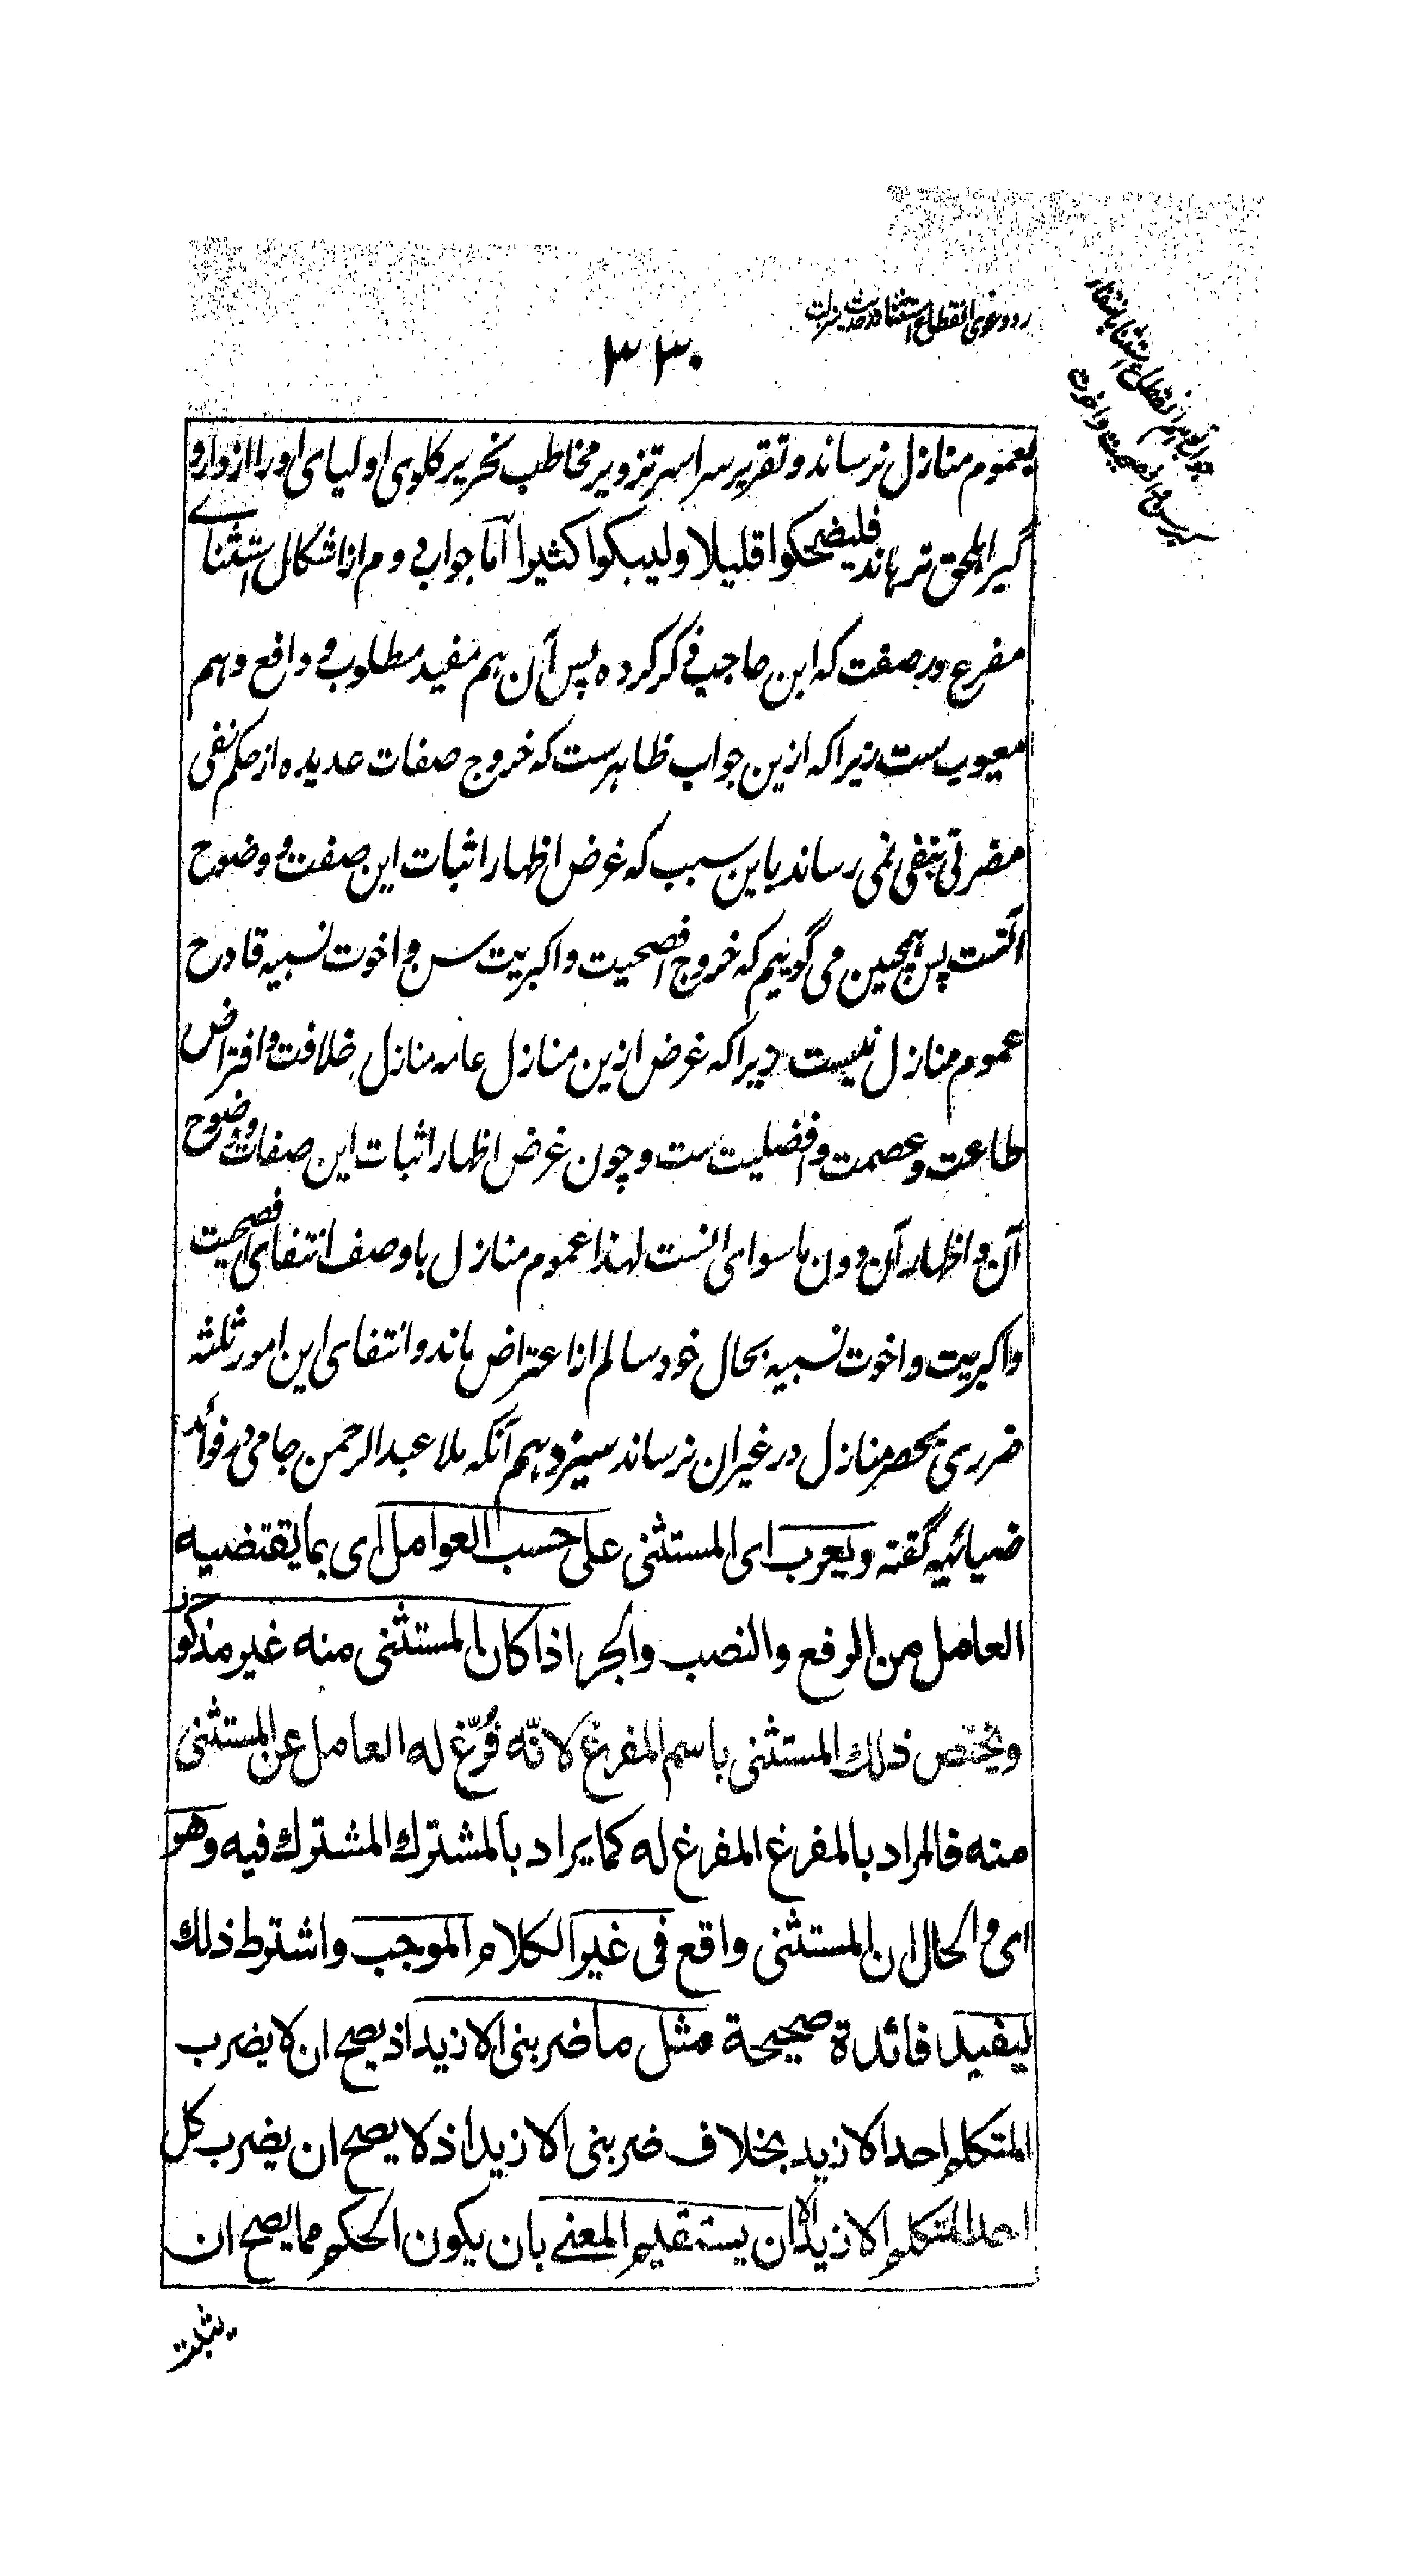 رد دعوی انقطاع استثنا در حدیث منزلت
۳۳۰
جواب از انقطاع استثنا بانتفاء
سن و افصحیت و اخوت
بعموم منازل نرساند و تقریر سراسر تزویر مخاطب نحریر گلوی اولیای او را از دار و
گیر اهل حق نرهاند فلیضحکوا قلیلا ولیبکوا کثیرا اما جواب دوم از اشکال استثنای
مفرغ در صفت که ابن حاجب ذکر کرده پس آن هم مفید مطلوب و دافع وهم
معیوب ست زیرا که ازین جواب ظاهرست که خروج صفات عدیده از حکم نفی
مضرتی بنفی نمی رساند باین سبب که غرض اظهار اثبات این صفت و وضوح
آنست پس همچنین می گوییم که خروج افصحیت و اکبریت سن و اخوت نسبیه قادح
عموم منازل نیست زیرا که غرض ازین منازل عامه منازل خلافت و افتراض
طاعت و عصمت و افضلیت ست و چون غرض اظهار اثبات این صفات و وضوح
آن و اظهار آن دون ما سوای آنست لهذا عموم منازل با وصف انتفای افصحیت
و اکبریت و اخوت نسبیه بحال خود سالم از اعتراض ماند و انتفای این امور ثلثه
ضرری بحصر منازل در غیر ان نرساند سیزدهم آنکه ملا عبد الرحمن جامی در فوائد
ضیائیه گفته ویعرب ای المستثنی علی حسب العوامل ای بما یقتضیه
العامل من الرفع والنصب والجر اذا کان المستثنی منه غیر مذکور
ویختص ذلك المستثنی باسم المفرغ لانّه فُرّغ له العامل عن المستثنی
منه فالمراد بالمفرغ المفرغ له کما یراد بالمشترك المشترك فیه وهو
ای والحال ان المستثنی واقع فی غیر الکلام الموجب واشترط ذلك
لیفید فائدة صحیحة مثل ما ضربنی الا زید اذ یصح ان لا یضرب
المتکلم احد الا زید بخلاف ضربنی الا زید اذ لا یصح ان یضرب کل
احد المتکلم الا زید الا ان یستقیم المعنی بان یکون الحکم مما یصح ان
یثبت